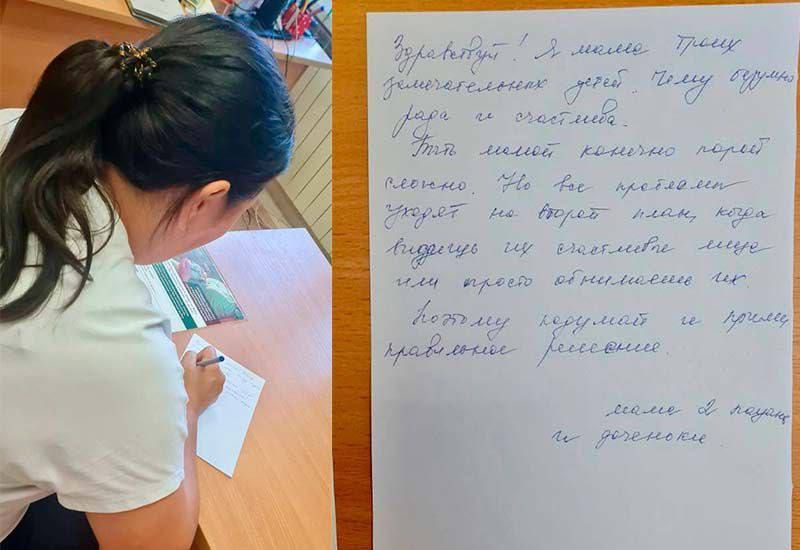 Здравствуй! Я мама троих
замечательных детей. Чему безумно
рада и счастлива.
Быть мамой конечно порой
сложно. Но все проблемы
уходят на второй план, когда
видишь их счастливые лица
или просто обнимаешь их.
Поэтому подумай и прими
правильное решение.
мама 2 пацанов
и доченьки.